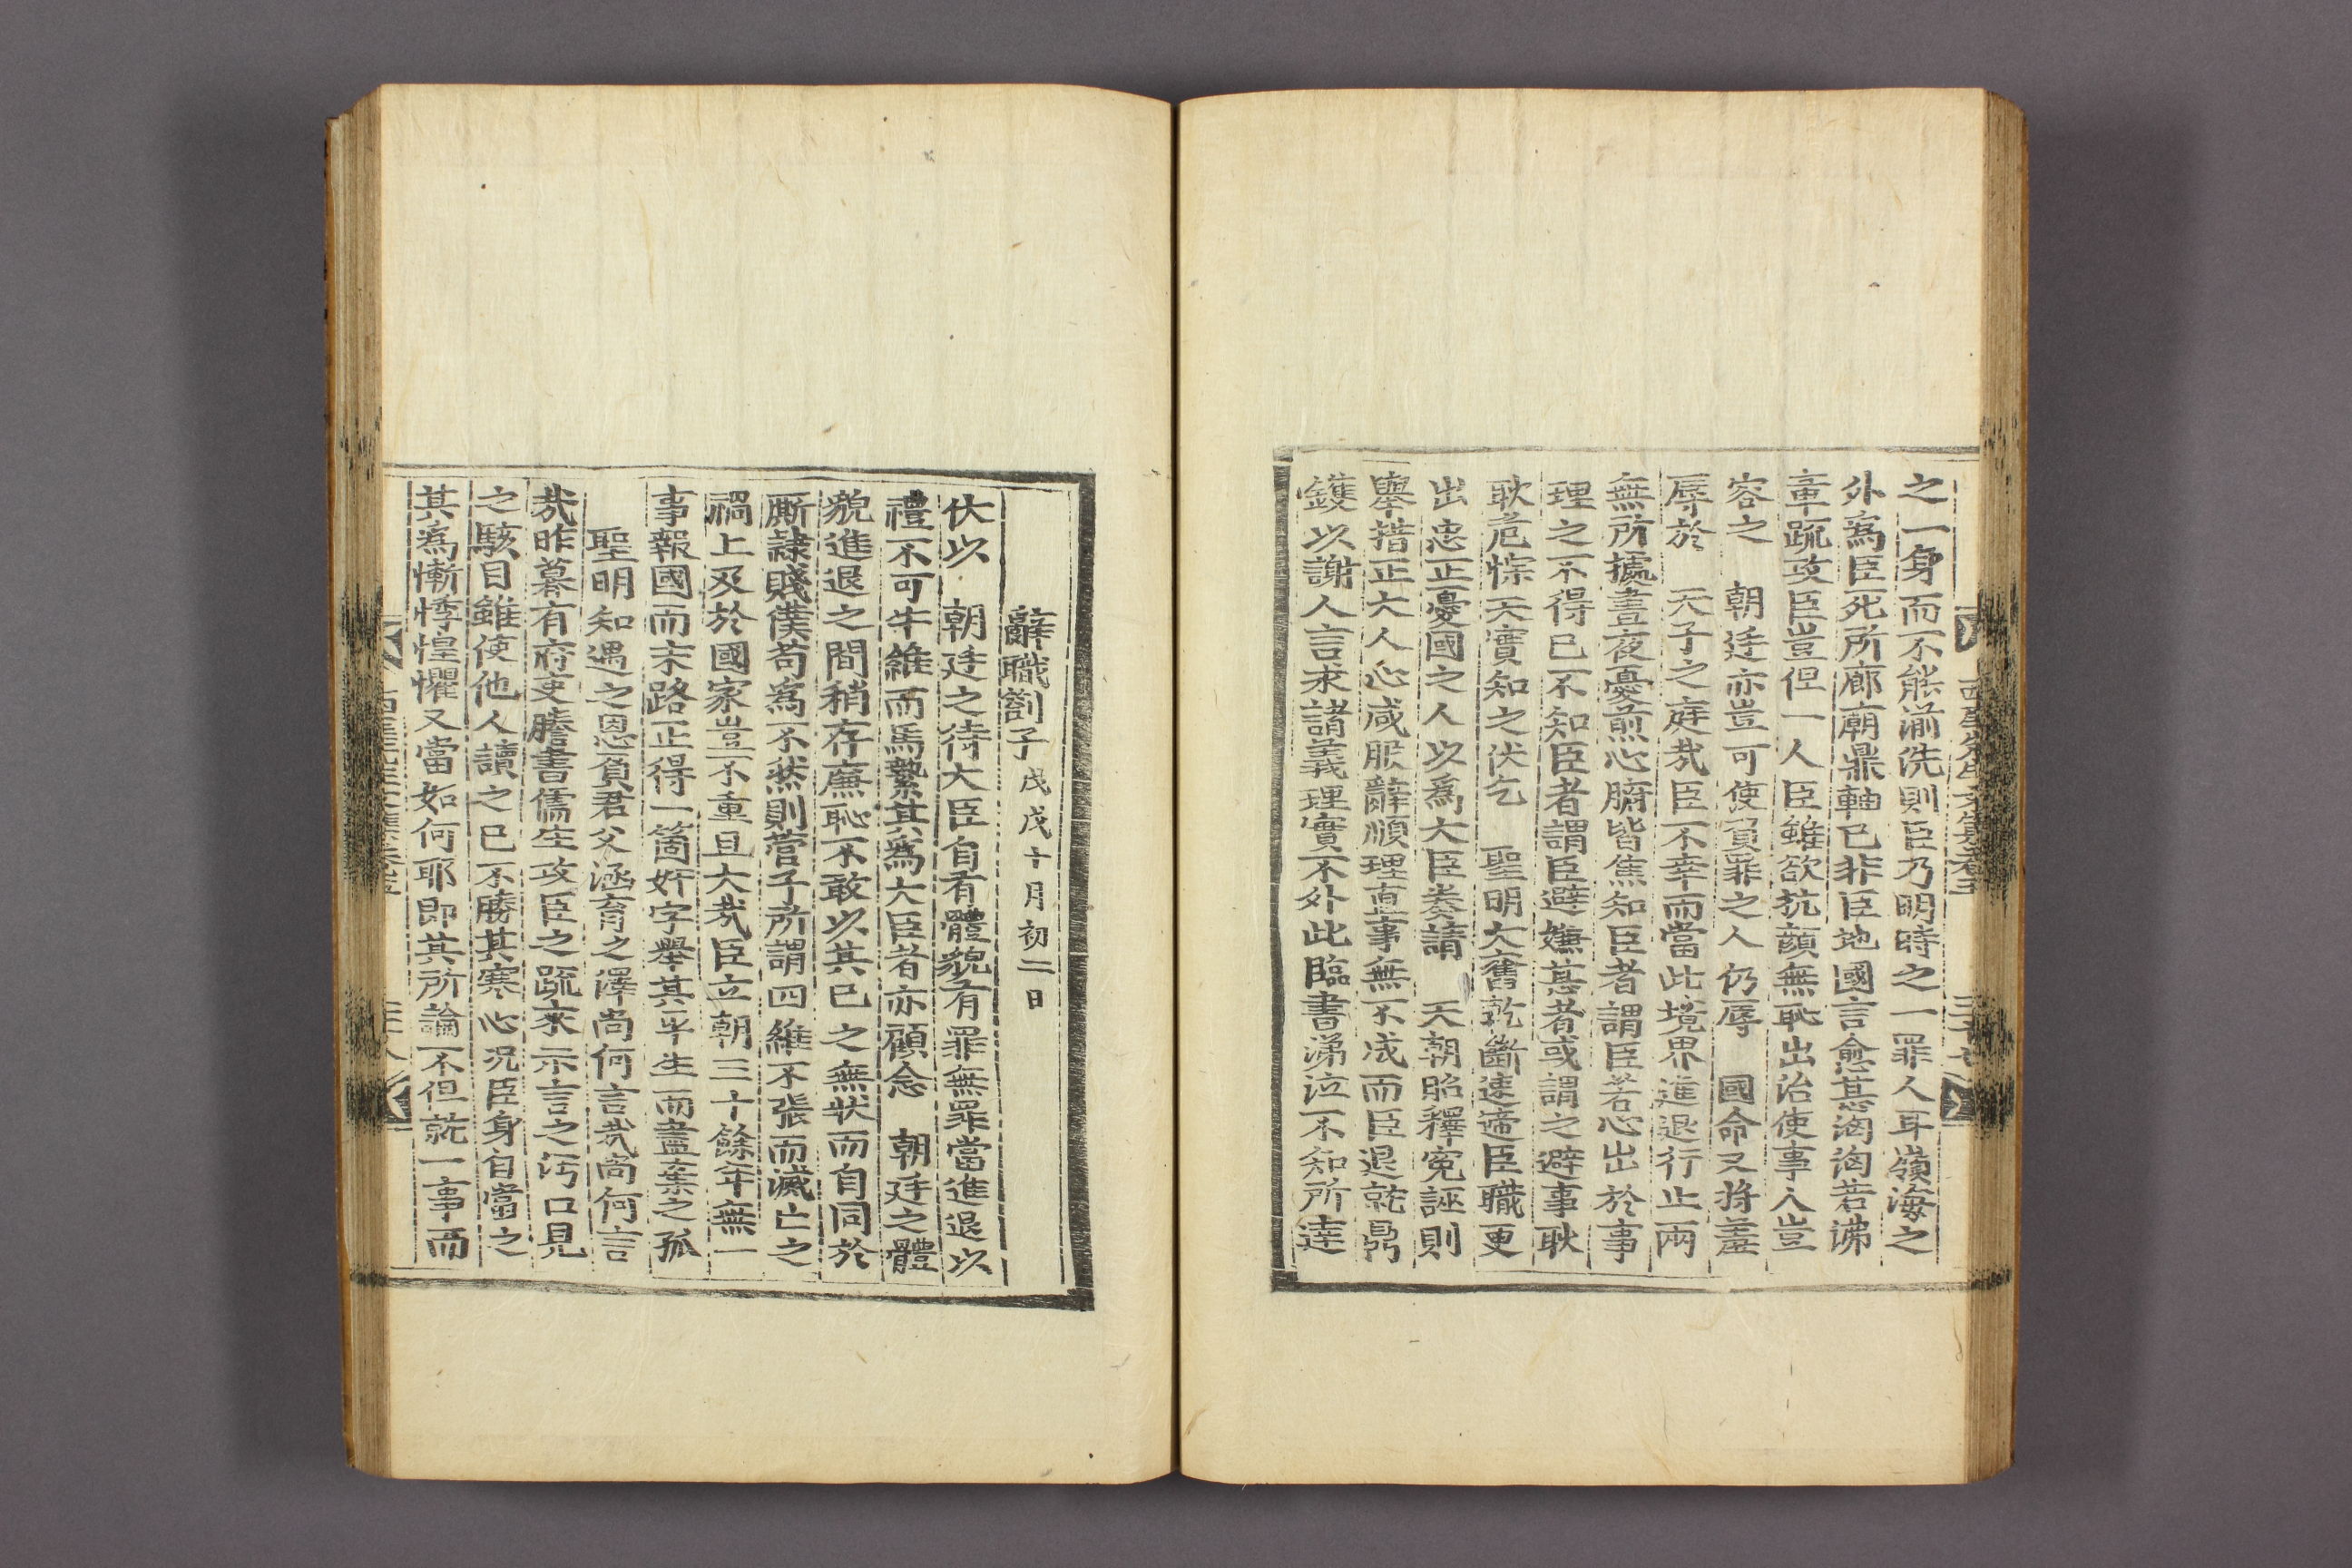 之一身而不能湔洗則臣乃明時之一罪人耳嶺海之
外爲臣死所廊廟鼎軸已非臣地國言愈甚洶洶若沸
章疏攻臣豈但一人臣雖欲抗顔無恥出治使事人豈
容之　朝廷亦豈可使負罪之人仍辱　國命又將羞
辱於　天子之庭哉臣不幸而當此境界進退行止兩
無所據晝夜憂煎心腑皆焦知臣者謂臣若心出於事
理之不得已不知臣者謂臣避嫌甚者或謂之避事耿
耿危悰天實知之伏乞　聖明大奮乾斷速遞臣職更
出忠正憂國之人以爲大臣奏請　天朝昭釋寃誣則
擧措正大人心咸服辭順理直事無不成而臣退就鼎
鑊以謝人言求諸義理實不外此臨書涕泣不知所達
辭職劄子 戊戌十月初二日
伏以　朝廷之待大臣自有體貌有罪無罪當進退以
禮不可牛維而馬縶其爲大臣者亦顧念　朝廷之體
貌進退之間稍存廉恥不敢以其已之無狀而自同於
厮隷賤僕苟爲不然則菅子所謂四維不張而滅亡之
禍上及於國家豈不重且大哉臣立朝三十餘年無一
事報國而末路正得一箇奸字擧其平生而盡棄之孤
聖明知遇之恩負君父涵育之澤尚何言哉尚何言
哉昨暮有府吏謄書儒生攻臣之疏來示言之汚口見
之駭目雖使他人讀之已不勝其寒心况臣身自當之
其爲慚悸惶懼又當如何耶即其所論不但就一事而